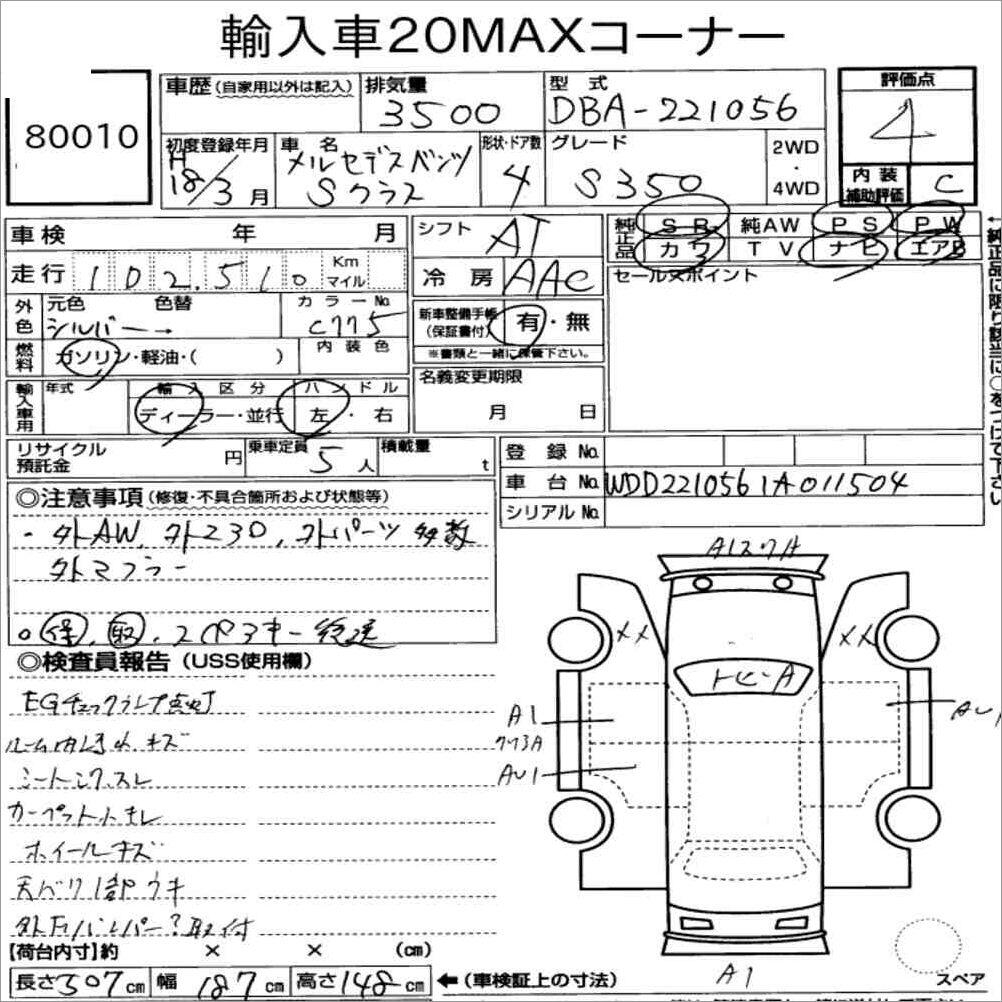 輸入車20MAXコーナー
80010
車歴 (自家用以外は記入) 排気量 3500 型式 DBA-221056 評価点 4
初度登録年月 H18/3月 車名 メルセデスベンツ Sクラス 形状・ドア数 4 グレード S350 2WD・4WD 内装補助評価 C
車検 年 月 シフト AT 純正品 SR 純AW PS PW
カワ TV ナビ エアB
走行 102,510 Km マイル 冷房 AAC セールスポイント
←純正品に限り該当に○をつけて下さい
外色 元色 シルバー→ 色替 カラーNo. C775 新車整備手帳(保証書付) 有・無
※書類と一緒に保管下さい。
燃料 ガソリン・軽油・( ) 内装色
名義変更期限 月 日
輸入車用 年式 輸入区分 ディーラー・並行 ハンドル 左・右
リサイクル預託金 円 乗車定員 5人 積載量 t 登録No.
車台No. WDD2210561A011504
シリアルNo.
◎注意事項 (修復・不具合箇所および状態等)
・外AW、外マ30、外パーツ多数
外マフラー
○保、取、スペアキー後送
◎検査員報告 (USS使用欄)
EGチェックランプ点灯
ルーム内 キズ
シートシワ、スレ
カーペット キレ
ホイールキズ
天バリ1部ウキ
外Fバンパー?取付
A1 スクA
XX
XX
トビーA
A1
AU1
AU1
A1
スペア
【荷台内寸】約 × × (cm)
長さ507cm 幅187cm 高さ148cm ←(車検証上の寸法)